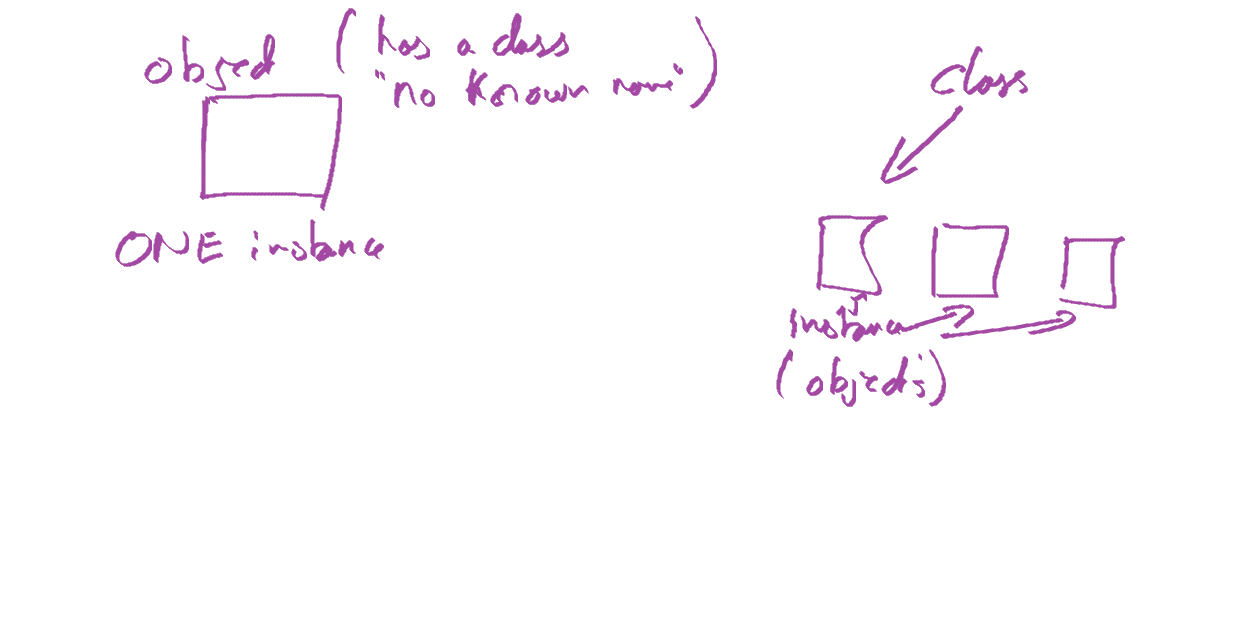 object
(has a class
"no known name")
ONE instance
class
instance
(objects)